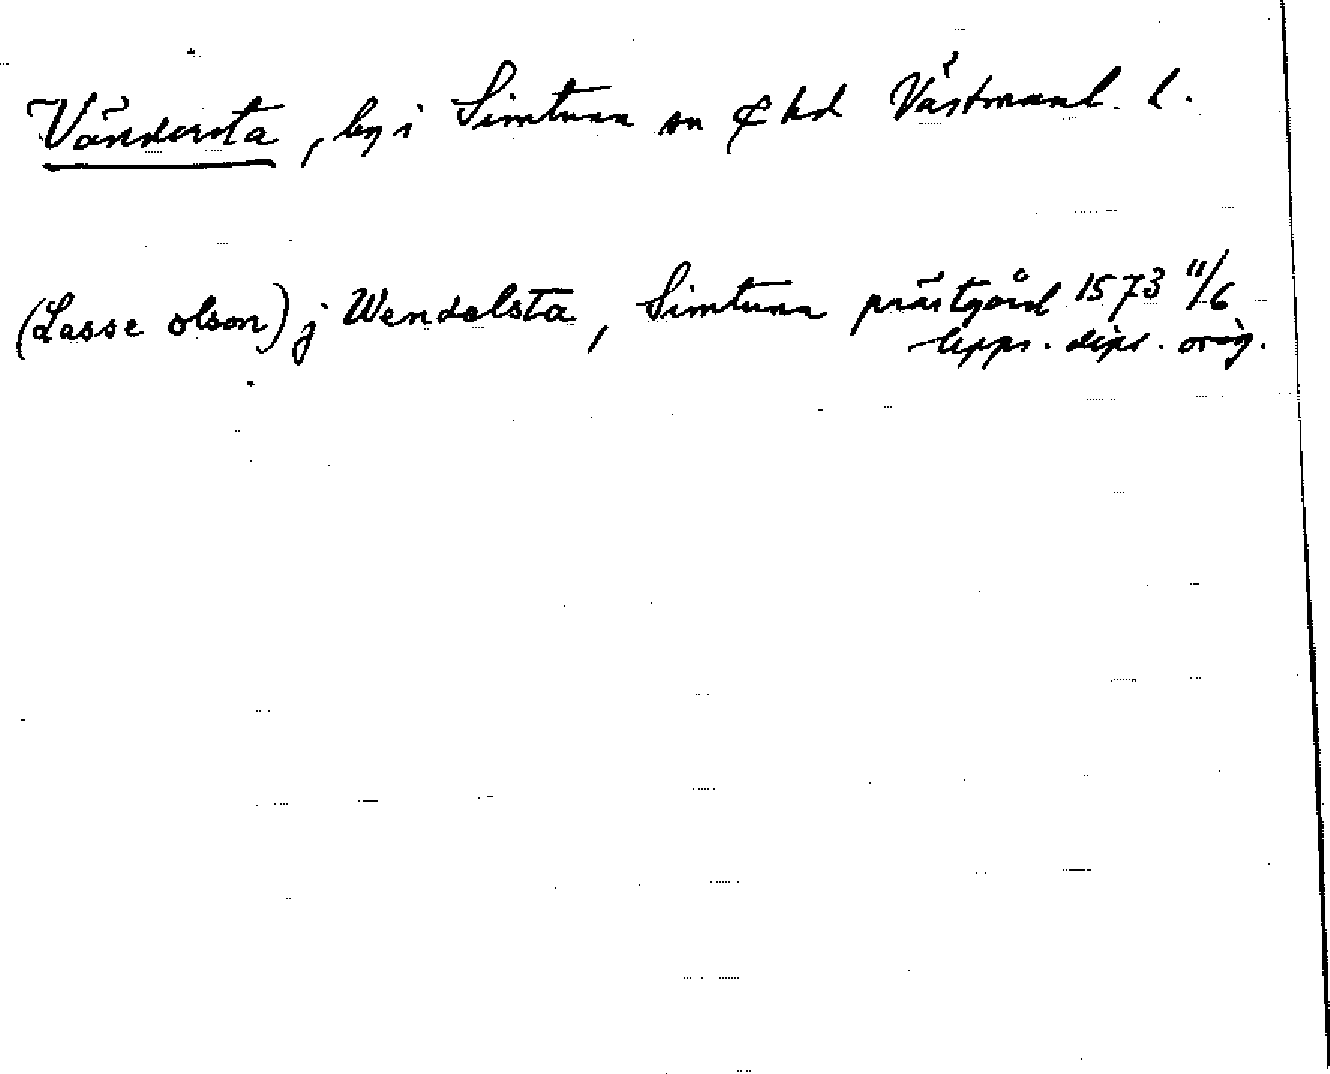 Vändersta, by i Simtuna sn & hd Västmanl. l.
(Lasse olson) j Wendelsta, Simtuna prästgård 1573 11/6
Upps. dipl. orig.